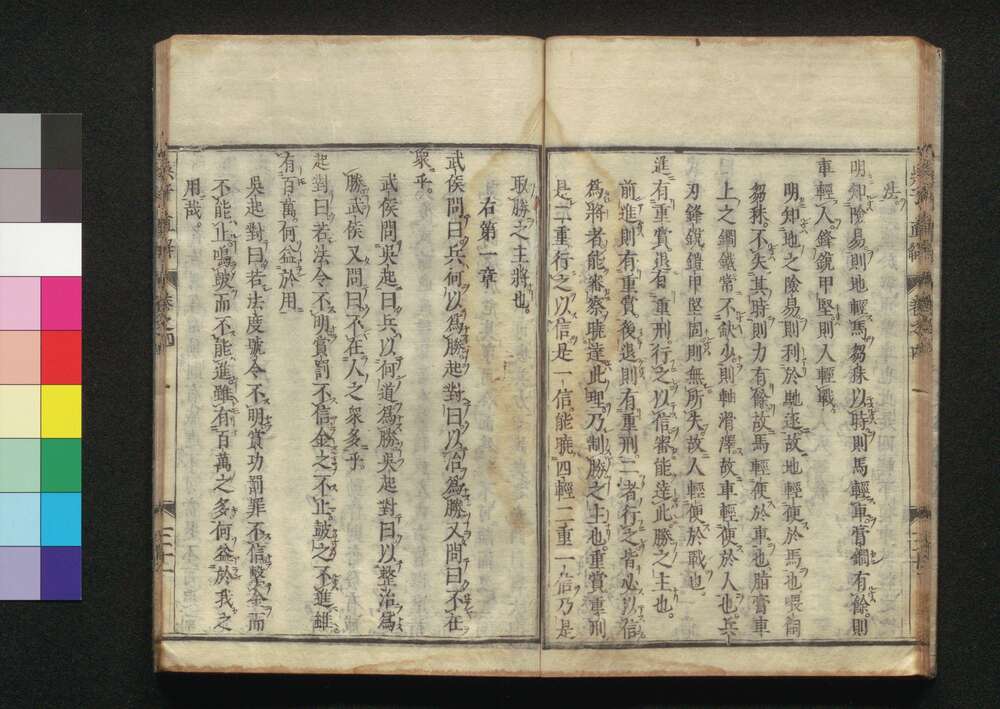 法。
明知險易則地輕馬芻秣以時則馬輕車膏鐧有餘則
車輕人鋒銳甲堅則人輕戰。
明知地之險易則利於馳逐故地輕便於馬也喂飼
芻秣不失其時則力有餘故馬輕便於車也脂膏車
上之鐧鐵常不缺少則軸滑澤故車輕便於人也兵
刃鋒銳鎧甲堅固則無所失故人輕便於戰也。
進有重賞退有重刑行之以信審能達此勝之主也。
前進則有重賞後退則有重刑二者行之皆必以信
為將者能審察曉達此理乃制勝之主也重賞重刑
是二重行之以信是一信能曉四輕二重一信乃是
取勝之主將也。
右第一章
武侯問曰兵何以為勝起對曰以治為勝又問曰不在
眾乎。
武侯問吳起曰兵以何道為勝吳起對曰以整治為
勝武侯又問曰不在人之衆多乎
起對曰若法令不明賞罰不信金之不止鼓之不進雖
有百萬何益於用。
吳起對曰若法度號令不明賞功罰罪不信擊金而
不能止鳴鼓而不能進雖有百萬之多何益於我之
用哉。
直解 卷之四